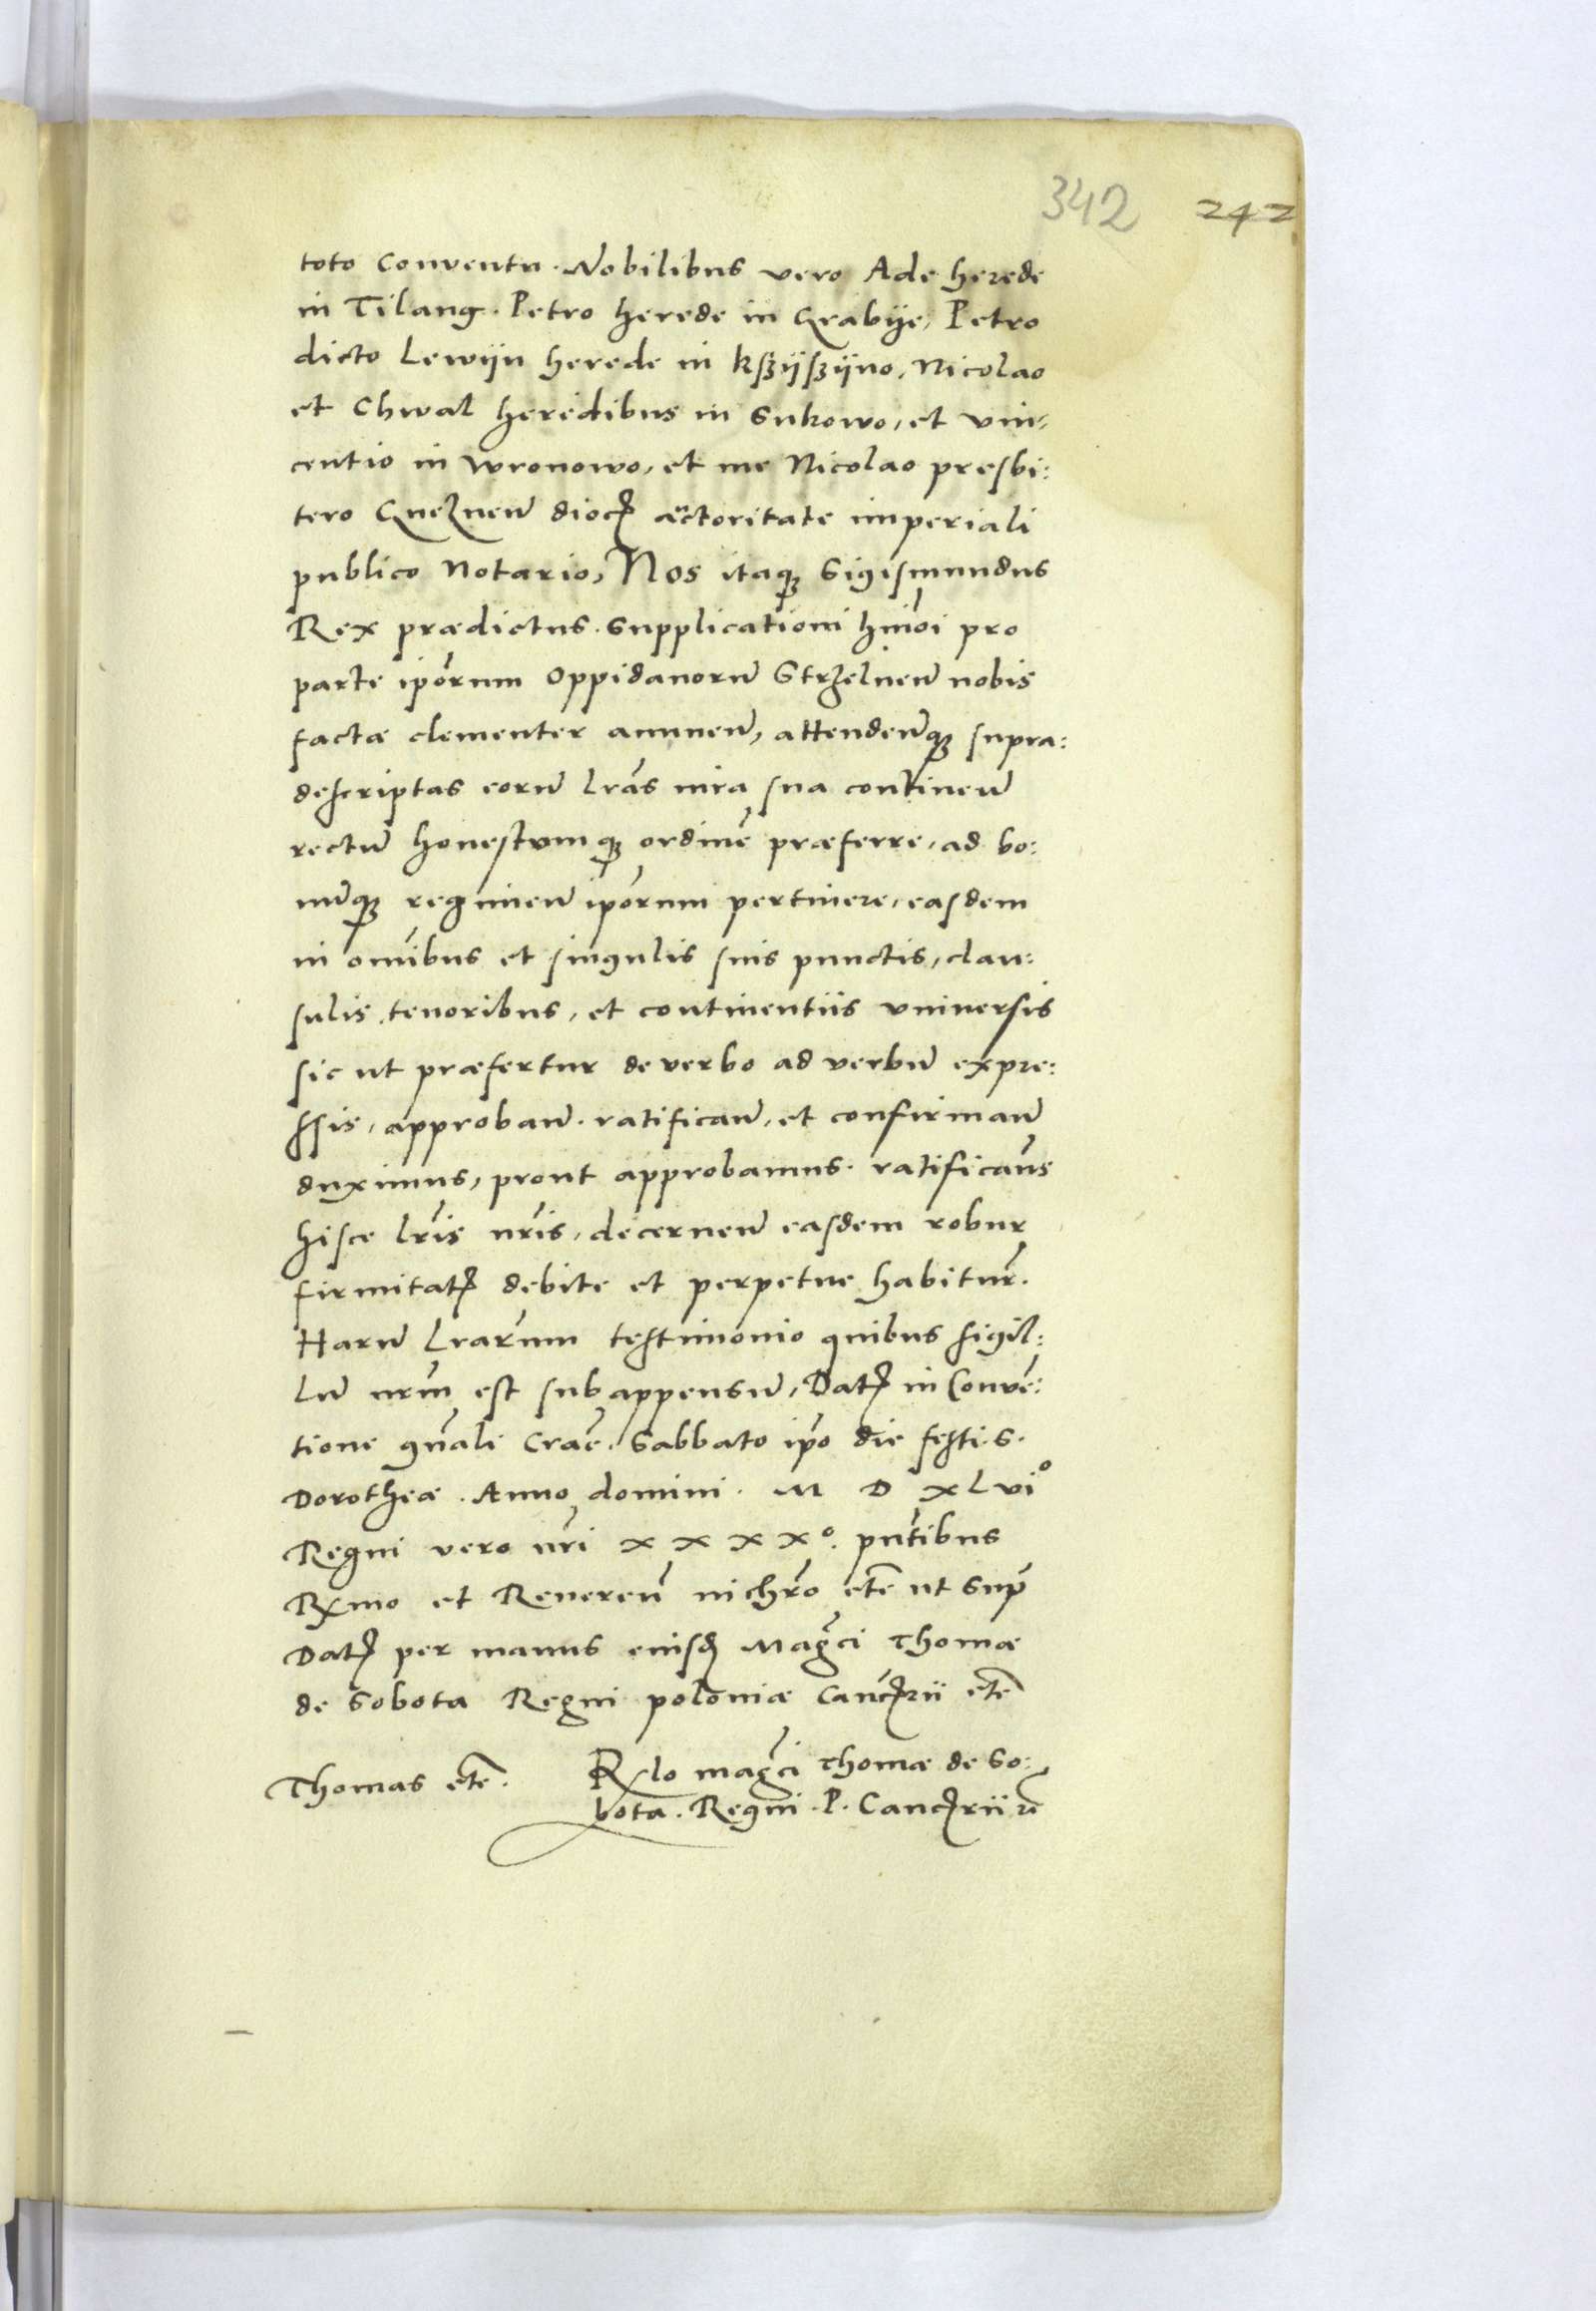 342 242
toto conventu. Nobilibus vero Ade herede
in Tilang. Petro herede in Grabije, Petro
dicto Lewijn herede in kszijszijno, Nicolao
et Chwal heredibus in Sukowo, et vin,
centio in Wronowo, et me Nicolao presbi:
tero Gneznen̄ dioc̄ auctoritate imperiali
publico Notario, Nos itaqꝫ Sigismundus
Rex prædictus. supplicationi hmōi pro
parte ip̄orum oppidanorū Strzelnen̄ nobis
factæ clementer annuen̄, attenden̄qꝫ supra:
descriptas eorū lr̄as iura sua continen̄
rectū honestumqꝫ ordinē præferre, ad bo:
nūqꝫ regimen ip̄orum pertinere, easdem
in om̄ibus et singulis suis punctis, clau:
sulis, tenoribus, et continentiis universis
sic ut præfertur de verbo ad verbū expre:
ssis, approban̄. ratifican̄, et confirman̄
duximus, prout approbamus. ratificam̄s
hisce lr̄is nr̄is, decernen̄ easdem robur
firmitatꝭ debite et perpetue habitur̄.
Harū lr̄arum testimonio quibus sigil:
lū nr̄m est subappensū, Datꝭ in Convē:
tione gn̄ali Crac̄. Sabbato ip̄o die festi. S.
Dorotheæ. Anno domini. M D XLviº
Regni vero nr̄i X X X Xº. pn̄tibus
Rx̄mo et Reveren̄ in chr̄o etc̄ ut sup̄
Datꝭ per manus eiusd̄ Maḡci Thomæ
de Sobota Regni poloniæ Canc̄rii etc̄
Thomas etc̄. Rx̄lo maḡci Thomæ de So:
bota. Regni. P. Canc̄rii etc̄